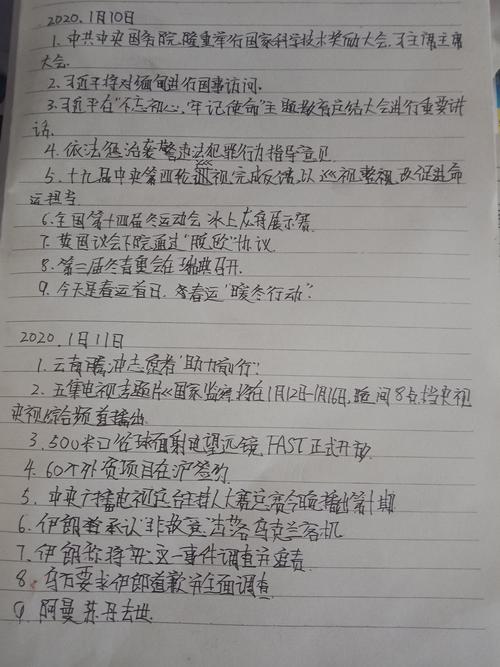 2020.1月10日
1. 中共中央国务院隆重举行国家科学技术奖励大会,习主席主席
大会.
2. 习近平将对缅甸进行国事访问.
3. 习近平在“不忘初心、牢记使命”主题教育总结大会进行重要讲
话.
4. 依法惩治袭警违法犯罪行为指导意见
5. 十九届中央第四轮巡视完成反馈,以巡视整视改促进
担当
6. 全国第十四届冬运动会冰上展示赛
7. 英国议会下院通过“脱欧”协议
8. 第三届冬青奥会在瑞典召开.
9. 今天是春运首日,冬春运“暖冬行动”.
2020.1月11日
1. 云南腾冲志愿者“助力前行”.
2. 五集电视专题片《国家监察》将在1月12日-1月16日,晚间8点档央视
央视综合频道播出
3. 500米口径球面射电望远镜 FAST正式开放.
4. 60个外资项目在沪签约
5. 中央广播电视总台主持人大赛今晚播出第十期
6. 伊朗承认“非故意”击落乌克兰客机
7. 伊朗称将就这一事件调查并追责
8. 乌方要求伊朗道歉并全面调查
9. 阿曼苏丹去世.